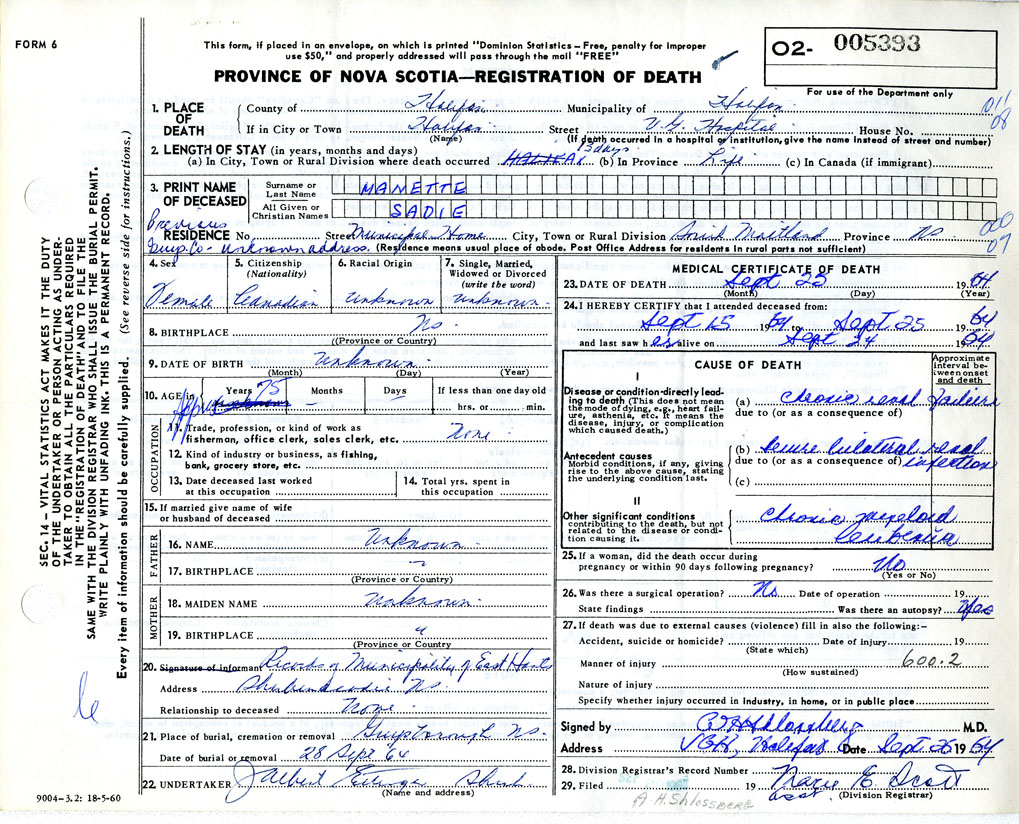 FORM 6
This form, if placed in an envelope, on which is printed "Dominion Statistics – Free, penalty for improper
use $50," and properly addressed will pass through the mail "FREE"
PROVINCE OF NOVA SCOTIA—REGISTRATION OF DEATH
02- 005393
For use of the Department only
1. PLACE OF DEATH
County of Halifax Municipality of Halifax
011
08
If in City or Town Halifax Street V.G. Hospital House No.
(Name) (If death occurred in a hospital or institution, give the name instead of street and number)
2. LENGTH OF STAY (in years, months and days)
(a) In City, Town or Rural Division where death occurred HALIFAX days (b) In Province Life (c) In Canada (if immigrant)
3. PRINT NAME OF DECEASED
Surname or Last Name MANETTE
All Given or Christian Names SADIE
Previous
RESIDENCE No. Street Municipal Home City, Town or Rural Division Maitland Province NS
07
Guys. Co- unknown address. (Residence means usual place of abode. Post Office Address for residents in rural parts not sufficient)
4. Sex
Female
5. Citizenship
(Nationality)
Canadian
6. Racial Origin
Unknown
7. Single, Married,
Widowed or Divorced
(write the word)
unknown
8. BIRTHPLACE NS
((Province or Country)
9. DATE OF BIRTH Unknown
(Month) (Day) (Year)
10. AGE in Years 75 Months – Days – If less than one day old
hrs. or min.
OCCUPATION
11. Trade, profession, or kind of work as
fisherman, office clerk, sales clerk, etc. None
12. Kind of industry or business, as fishing,
bank, grocery store, etc.
13. Date deceased last worked
at this occupation
14. Total yrs. spent in
this occupation
15. If married give name of wife
or husband of deceased
FATHER
16. NAME Unknown
17. BIRTHPLACE
(Province or Country)
MOTHER
18. MAIDEN NAME Unknown
19. BIRTHPLACE "
(Province or Country)
20. Signature of informant Records of Municipality of East Hants
Address Shubenacadie NS.
Relationship to deceased None
21. Place of burial, cremation or removal Guysborough NS.
Date of burial or removal 28 Sept '64
22. UNDERTAKER Shub.
(Name and address)
9004-3.2: 18-5-60
MEDICAL CERTIFICATE OF DEATH
23. DATE OF DEATH Sept 25 1964
(Month) (Day) (Year)
24. I HEREBY CERTIFY that I attended deceased from:
Sept 15 1964 to Sept 25 1964
and last saw h es alive on Sept 24 1964
CAUSE OF DEATH
Approximate interval between onset and death
I
Disease or condition directly leading to death (This does not mean
the mode of dying, e.g., heart failure, asthenia, etc. It means the
disease, injury, or complication
which caused death.)
(a) chronic renal failure
due to (or as a consequence of)
Antecedent causes
Morbid conditions, if any, giving
rise to the above cause, stating
the underlying condition last.
(b) severe bilateral renal
due to (or as a consequence of) infection
(c)
II
Other significant conditions
contributing to the death, but not
related to the disease or condition causing it.
chronic myeloid
leukemia
25. If a woman, did the death occur during
pregnancy or within 90 days following pregnancy? No
(Yes or No)
26. Was there a surgical operation? No Date of operation 19
State findings Was there an autopsy? Yes
27. If death was due to external causes (violence) fill in also the following:–
Accident, suicide or homicide? Date of injury 19
(State which)
Manner of injury 600.2
(How sustained)
Nature of injury
Specify whether injury occurred in Industry, in home, or in public place
Signed by A H Shlossberg M.D.
Address VGH, Halifax Date Sept 26 1964
28. Division Registrar's Record Number
29. Filed 19 Marie E Scott
asst. (Division Registrar)
A H. SHLOSSBERG
SEC. 14 – VITAL STATISTICS ACT MAKES IT THE DUTY
OF THE UNDERTAKER OR PERSON ACTING AS UNDERTAKER TO OBTAIN ALL THE PARTICULARS REQUIRED
IN THE "REGISTRATION OF DEATH" AND TO FILE THE
SAME WITH THE DIVISION REGISTRAR WHO SHALL ISSUE THE BURIAL PERMIT.
WRITE PLAINLY WITH UNFADING INK. THIS IS A PERMANENT RECORD.
Every item of information should be carefully supplied. (See reverse side for instructions.)